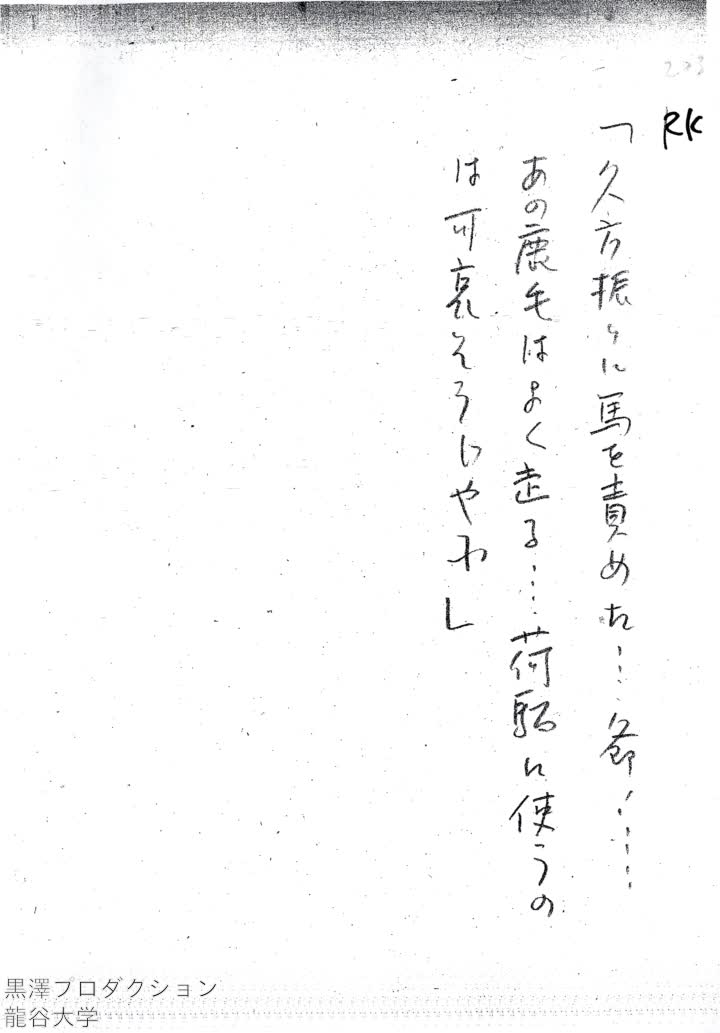 203
RK
「久方振りに馬を責めた……爺!……
あの鹿毛はよく走る……荷駄に使うの
は可哀そうじやわ」
黒澤プロダクション
龍谷大学